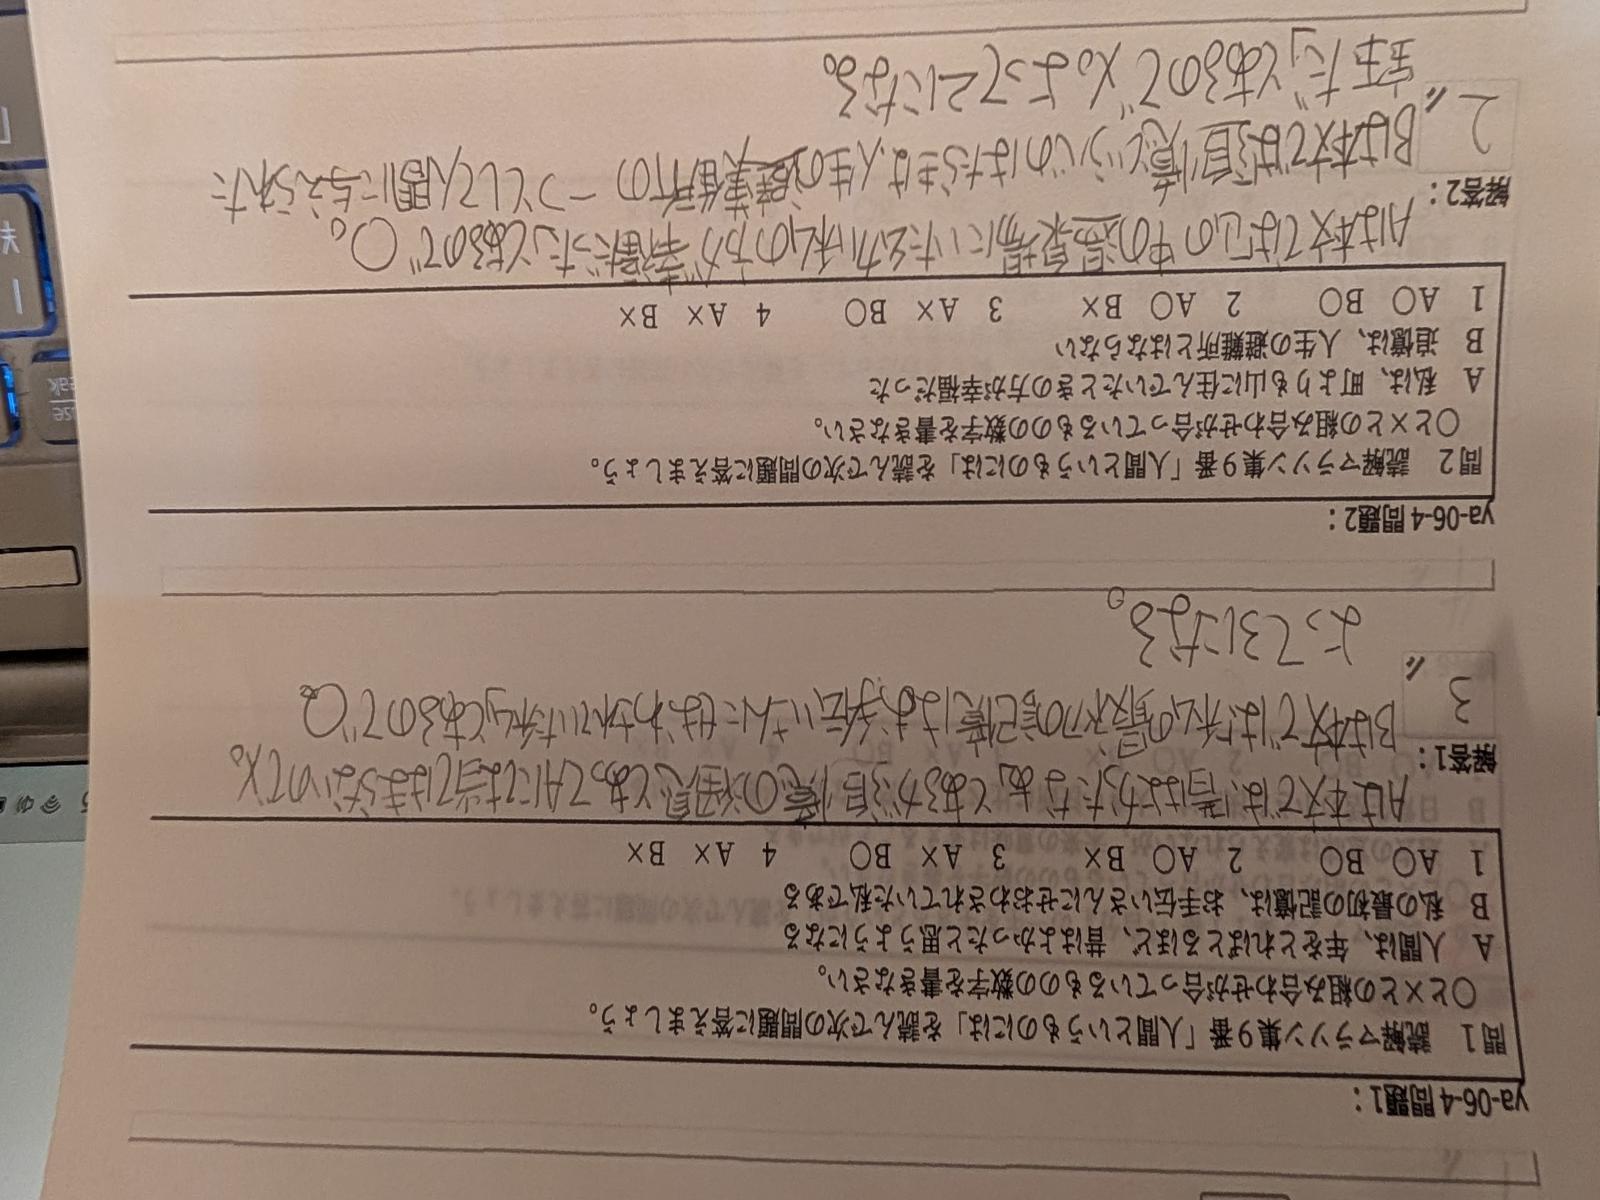 ya-06-4 問題1：
問1 読解マラソン集9番「人間というものには」を読んで次の問題に答えましょう。
○と×との組み合わせが合っているものの数字を書きなさい。
A 人間は、年をとればとるほど、昔はよかったと思うようになる
B 私の最初の記憶は、お手伝いさんにせおわされていた私である
1 A○ B○ 2 A○ B× 3 A× B○ 4 A× B×
解答1：
3
Aは本文では、「昔はよかったなあ」とあるが追憶の
とあってAには当てはまらないので×。
Bは本文では「私の最初の記憶はお手伝いさんにせおわされていた私」とあるので○
よって3になる。
ya-06-4 問題2：
問2 読解マラソン集9番「人間というものには」を読んで次の問題に答えましょう。
○と×との組み合わせが合っているものの数字を書きなさい。
A 私は、町よりも山に住んでいたときの方が幸福だった
B 追憶は、人生の避難所とはならない
1 A○ B○ 2 A○ B× 3 A× B○ 4 A× B×
解答2：
2
Aは本文では「山の中の温泉場にいた幼い私の方が幸福だった」とあるので○。
Bは本文では「追憶という心のはたらきは、人生の避難所の一つとして人間に与えられた
宝玉だ」とあるので×。よって2になる。